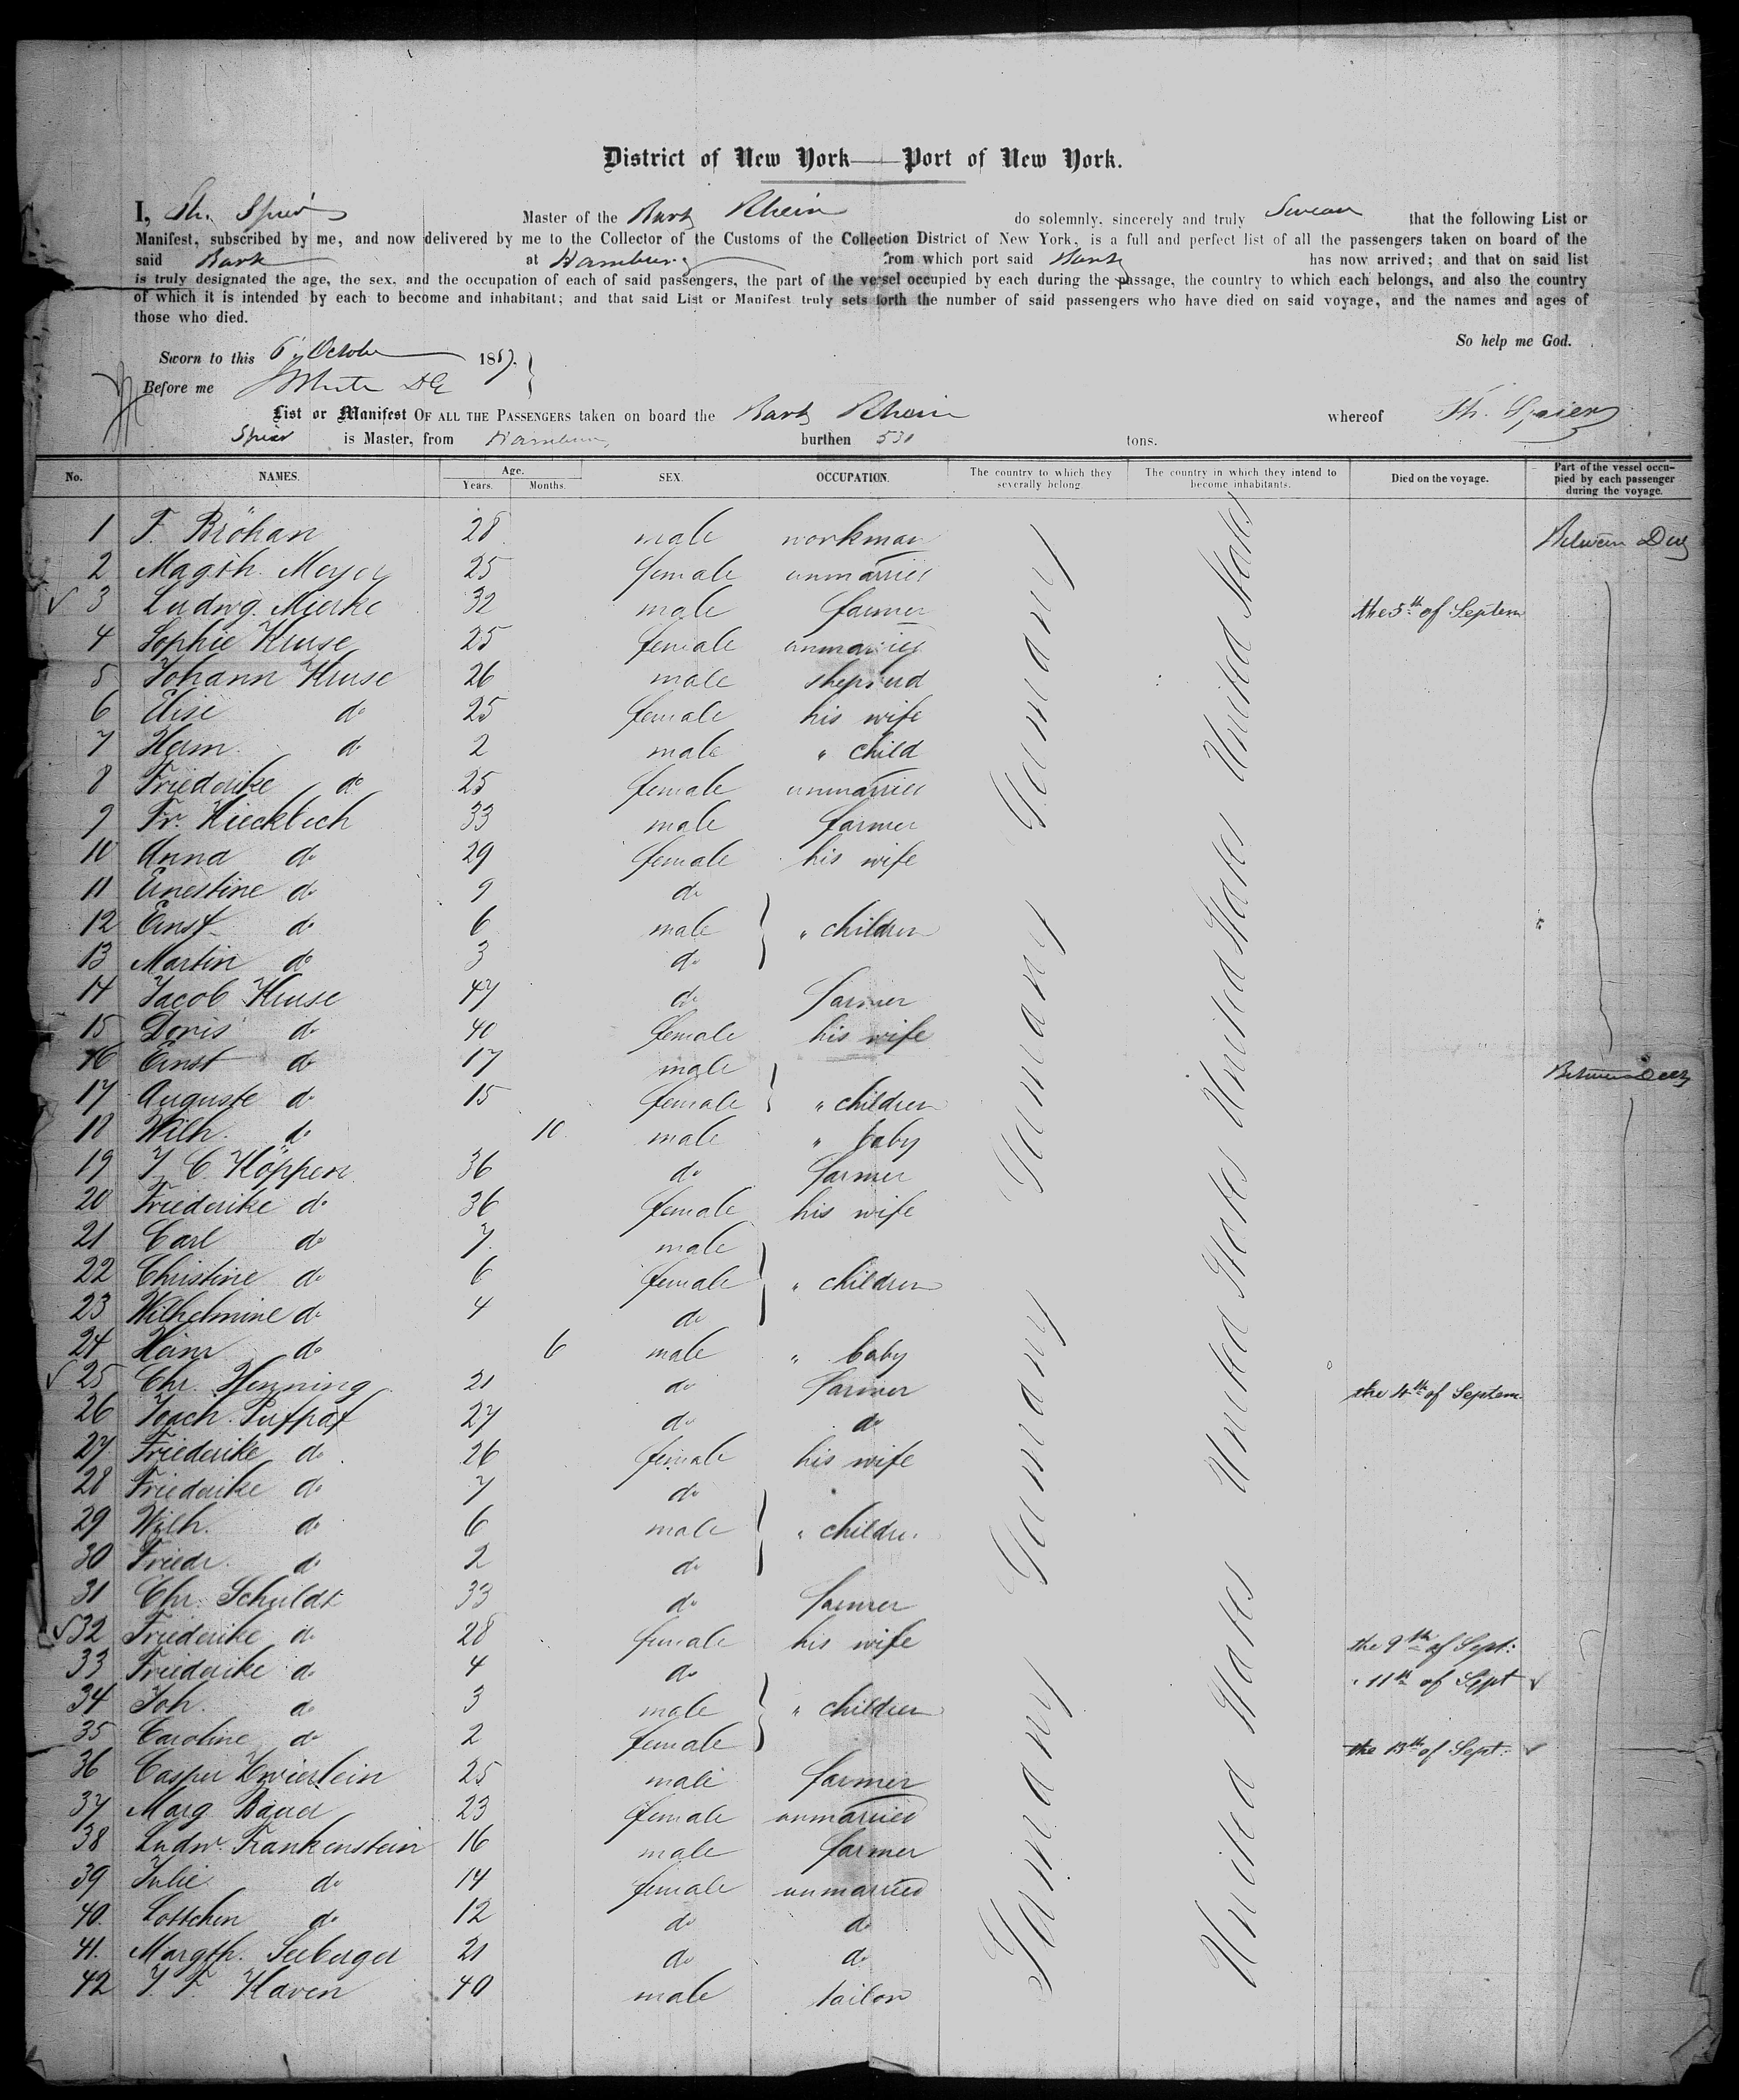 District of New York — Port of New York.
I, Th. Spier Master of the Bark Rhein do solemnly, sincerely and truly Swear that the following List or
Manifest, subscribed by me, and now delivered by me to the Collector of the Customs of the Collection District of New York, is a full and perfect list of all the passengers taken on board of the
said Bark at Hamburg from which port said Bark has now arrived; and that on said list
is truly designated the age, the sex, and the occupation of each of said passengers, the part of the vessel occupied by each during the passage, the country to which each belongs, and also the country
of which it is intended by each to become and inhabitant; and that said List or Manifest truly sets forth the number of said passengers who have died on said voyage, and the names and ages of
those who died.
So help me God.
Sworn to this 6 October 1857.
Before me
List or Manifest OF ALL THE PASSENGERS taken on board the Bark Rhein whereof Th. Spier
Spier is Master, from Hamburg burthen 530 tons.
No. NAMES. Age. Years. Months. SEX. OCCUPATION. The country to which they severally belong. The country in which they intend to become inhabitants. Died on the voyage. Part of the vessel occupied by each passenger during the voyage.
1 F. Bröhan 28 male workman Between Deck
2 Magth. Meyer 25 female unmarried
3 Ludwg. Mierke 32 male farmer the 5th of Septem
4 Sophie Kruse 25 female unmarried
5 Johann Kruse 26 male shepherd
6 Elise do 25 female his wife
7 Herm. do 2 male " child
8 Friederike do 25 female unmarried
9 Fr. Kieckbech 33 male farmer
10 Anna do 29 female his wife
11 Ernestine do 9 do
12 Ernst do 6 male " children
13 Martin do 3 do
14 Jacob Kruse 47 do farmer
15 Doris do 40 female his wife
16 Ernst do 17 male Between Deck
17 Auguste do 15 female " children
18 Wilh. do 10 male " baby
19 J. C. Köppen 36 do farmer
20 Friederike do 36 female his wife
21 Carl do 7 male
22 Christine do 6 female " children
23 Wilhelmine do 4 do
24 Heinr do 6 male " baby
25 Chr. Henning 21 do farmer the 4th of Septem.
26 Joach. Puffpaf 27 do do
27 Friederike do 26 female his wife
28 Friederike do 7 do
29 Wilh. do 6 male " children
30 Friedr. do 2 do
31 Chr. Schuldt 33 do farmer
32 Friederike do 28 female his wife the 9th of Sept:
33 Friederike do 4 do " 11th of Sept
34 Joh. do 3 male " children
35 Caroline do 2 female the 13th of Sept:
36 Casper Zwierlein 25 male farmer
37 Marg Bauer 23 female unmarried
38 Ludw. Frankenstein 16 male farmer
39 Julie do 14 female unmarried
40. Lottchen do 12 do do
41. Margth. Seeberger 21 do do
42 J F Haven 40 male tailor
Germany Germany Germany Germany
United States United States United States United States